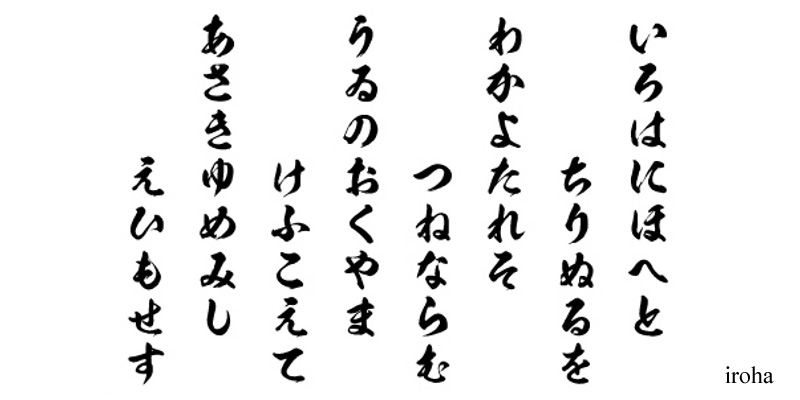 いろはにほへと
ちりぬるを
わかよたれそ
つねならむ
うゐのおくやま
けふこえて
あさきゆめみし
えひもせす
iroha